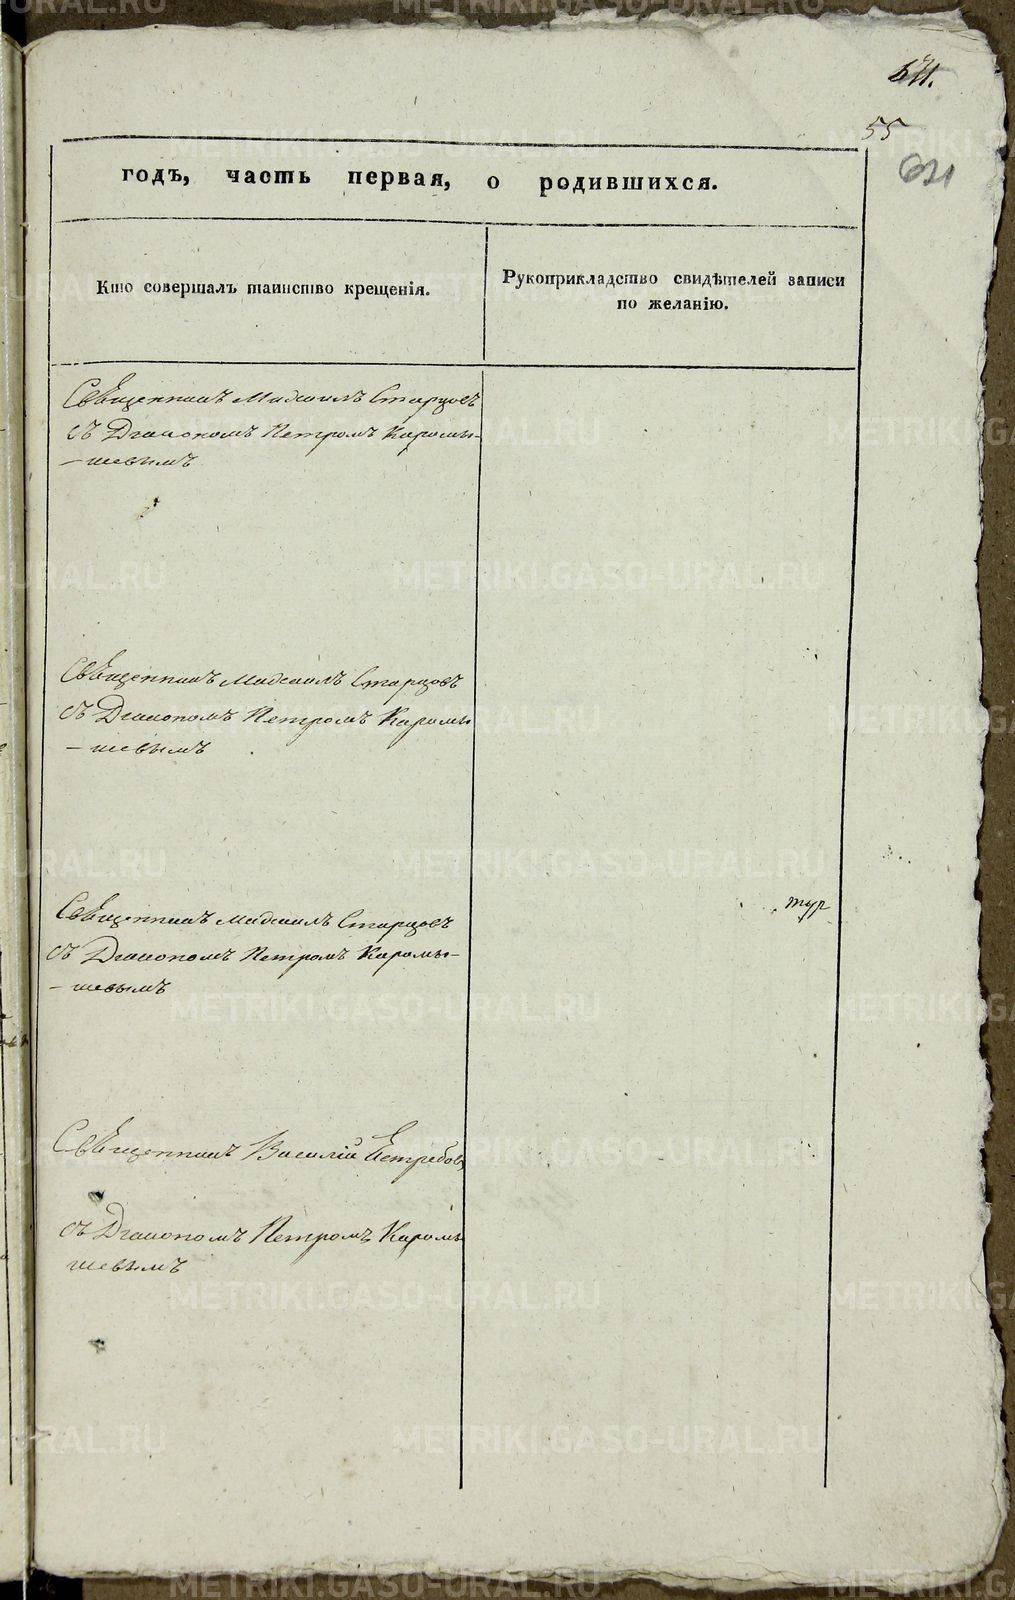 55
годъ, часть первая, о родившихся.
Кто совершалъ таинство крещенія.
Рукоприкладство свидѣтелей записи
по желанію.
Священникъ Михаилъ Старцовъ
съ Діакономъ Петромъ Карамы-
-шевымъ
Священникъ Михаилъ Старцовъ
съ Діакономъ Петромъ Карамы
-шевымъ
Священникъ Михаилъ Старцовъ
съ Діакономъ Петромъ Карамы-
-шевымъ
Священникъ Василій
съ Діакономъ Петромъ Карамы
шевымъ
METRIKI.GASO-URAL.RU